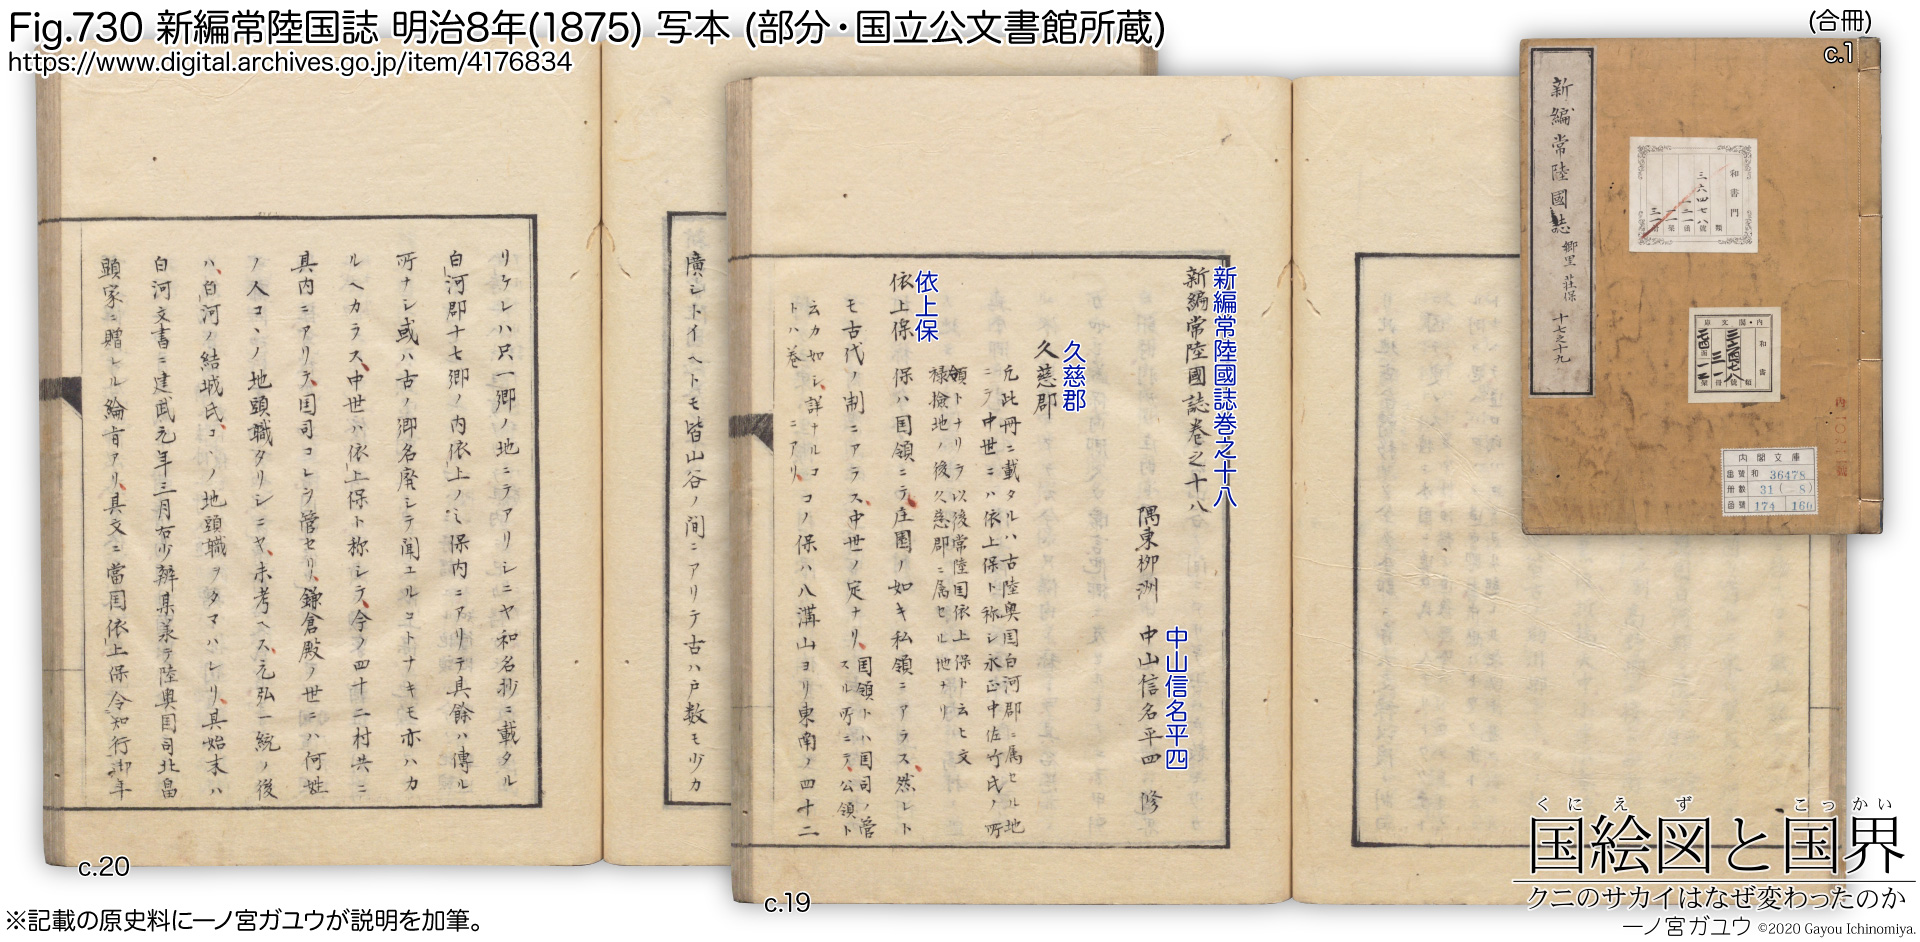 Fig.730 新編常陸国誌 明治8年(1875) 写本 (部分・国立公文書館所蔵)
https://www.digital.archives.go.jp/item/4176834
(合冊)
c.1
新編常陸國誌 郷里 荘保 十七之十九
和書門
三六四七八
内閣文庫
和書
内閣文庫
番號 和 36478
冊數 31(-8)
番號 174 166
新編常陸國誌巻之十八
新編常陸國誌巻之十八
隅東柳洲 中山信名平四 修
中山信名平四
久慈郡
久慈郡
元此冊ニ載タルハ古陸奥国白河郡ニ属セル地
ニテ中世ニハ依上保ト称シ永正中佐竹氏ノ所
領トナリテ以後常陸国依上保ト云ヒ文
禄検地ノ後久慈郡ニ属セル地ナリ
依上保
依上保 保ハ国領ニテ庄園ノ如キ私領ニアラス然レト
モ古代ノ制ニアラス中世ノ定ナリ 国領トハ国司ノ管
スル所ニテ公領ト
云カ如シ詳ナルコ
トハ巻 ニアリ コノ保ハ八溝山ヨリ東南ノ四十二
c.19
廣シトイヘトモ皆山谷ノ間ニアリテ古ハ戸数モ少カ
リケレハ只一郷ノ地ニテアリシニヤ和名抄ニ載タル
白河郡十七郷ノ内依上ノ保内ニアリテ其餘ハ傳ル
所ナシ或ハ古ノ郷名廃シテ聞エルコトナキモ亦ハカ
ルヘカラス中世ハ依上保ト称シテ今ノ四十二村共ニ
其内ニアリテ国司コレヲ管セリ鎌倉殿ノ世ニハ何姓
ノ人コヽノ地頭職タリシニヤ未考ヘス元弘一統ノ後
ハ白河ノ結城氏コヽノ地頭職ヲタマハレリ其始末ハ
白河文書ニ建武元年三月右少辨某奉テ陸奥国司北畠
顕家ニ贈レル綸旨アリ其文ニ當国依上保令知行御年
c.20
※記載の原史料に一ノ宮ガユウが説明を加筆。
くにえず こっかい
国絵図と国界
クニのサカイはなぜ変わったのか
一ノ宮ガユウ ©2020 Gayou Ichinomiya.